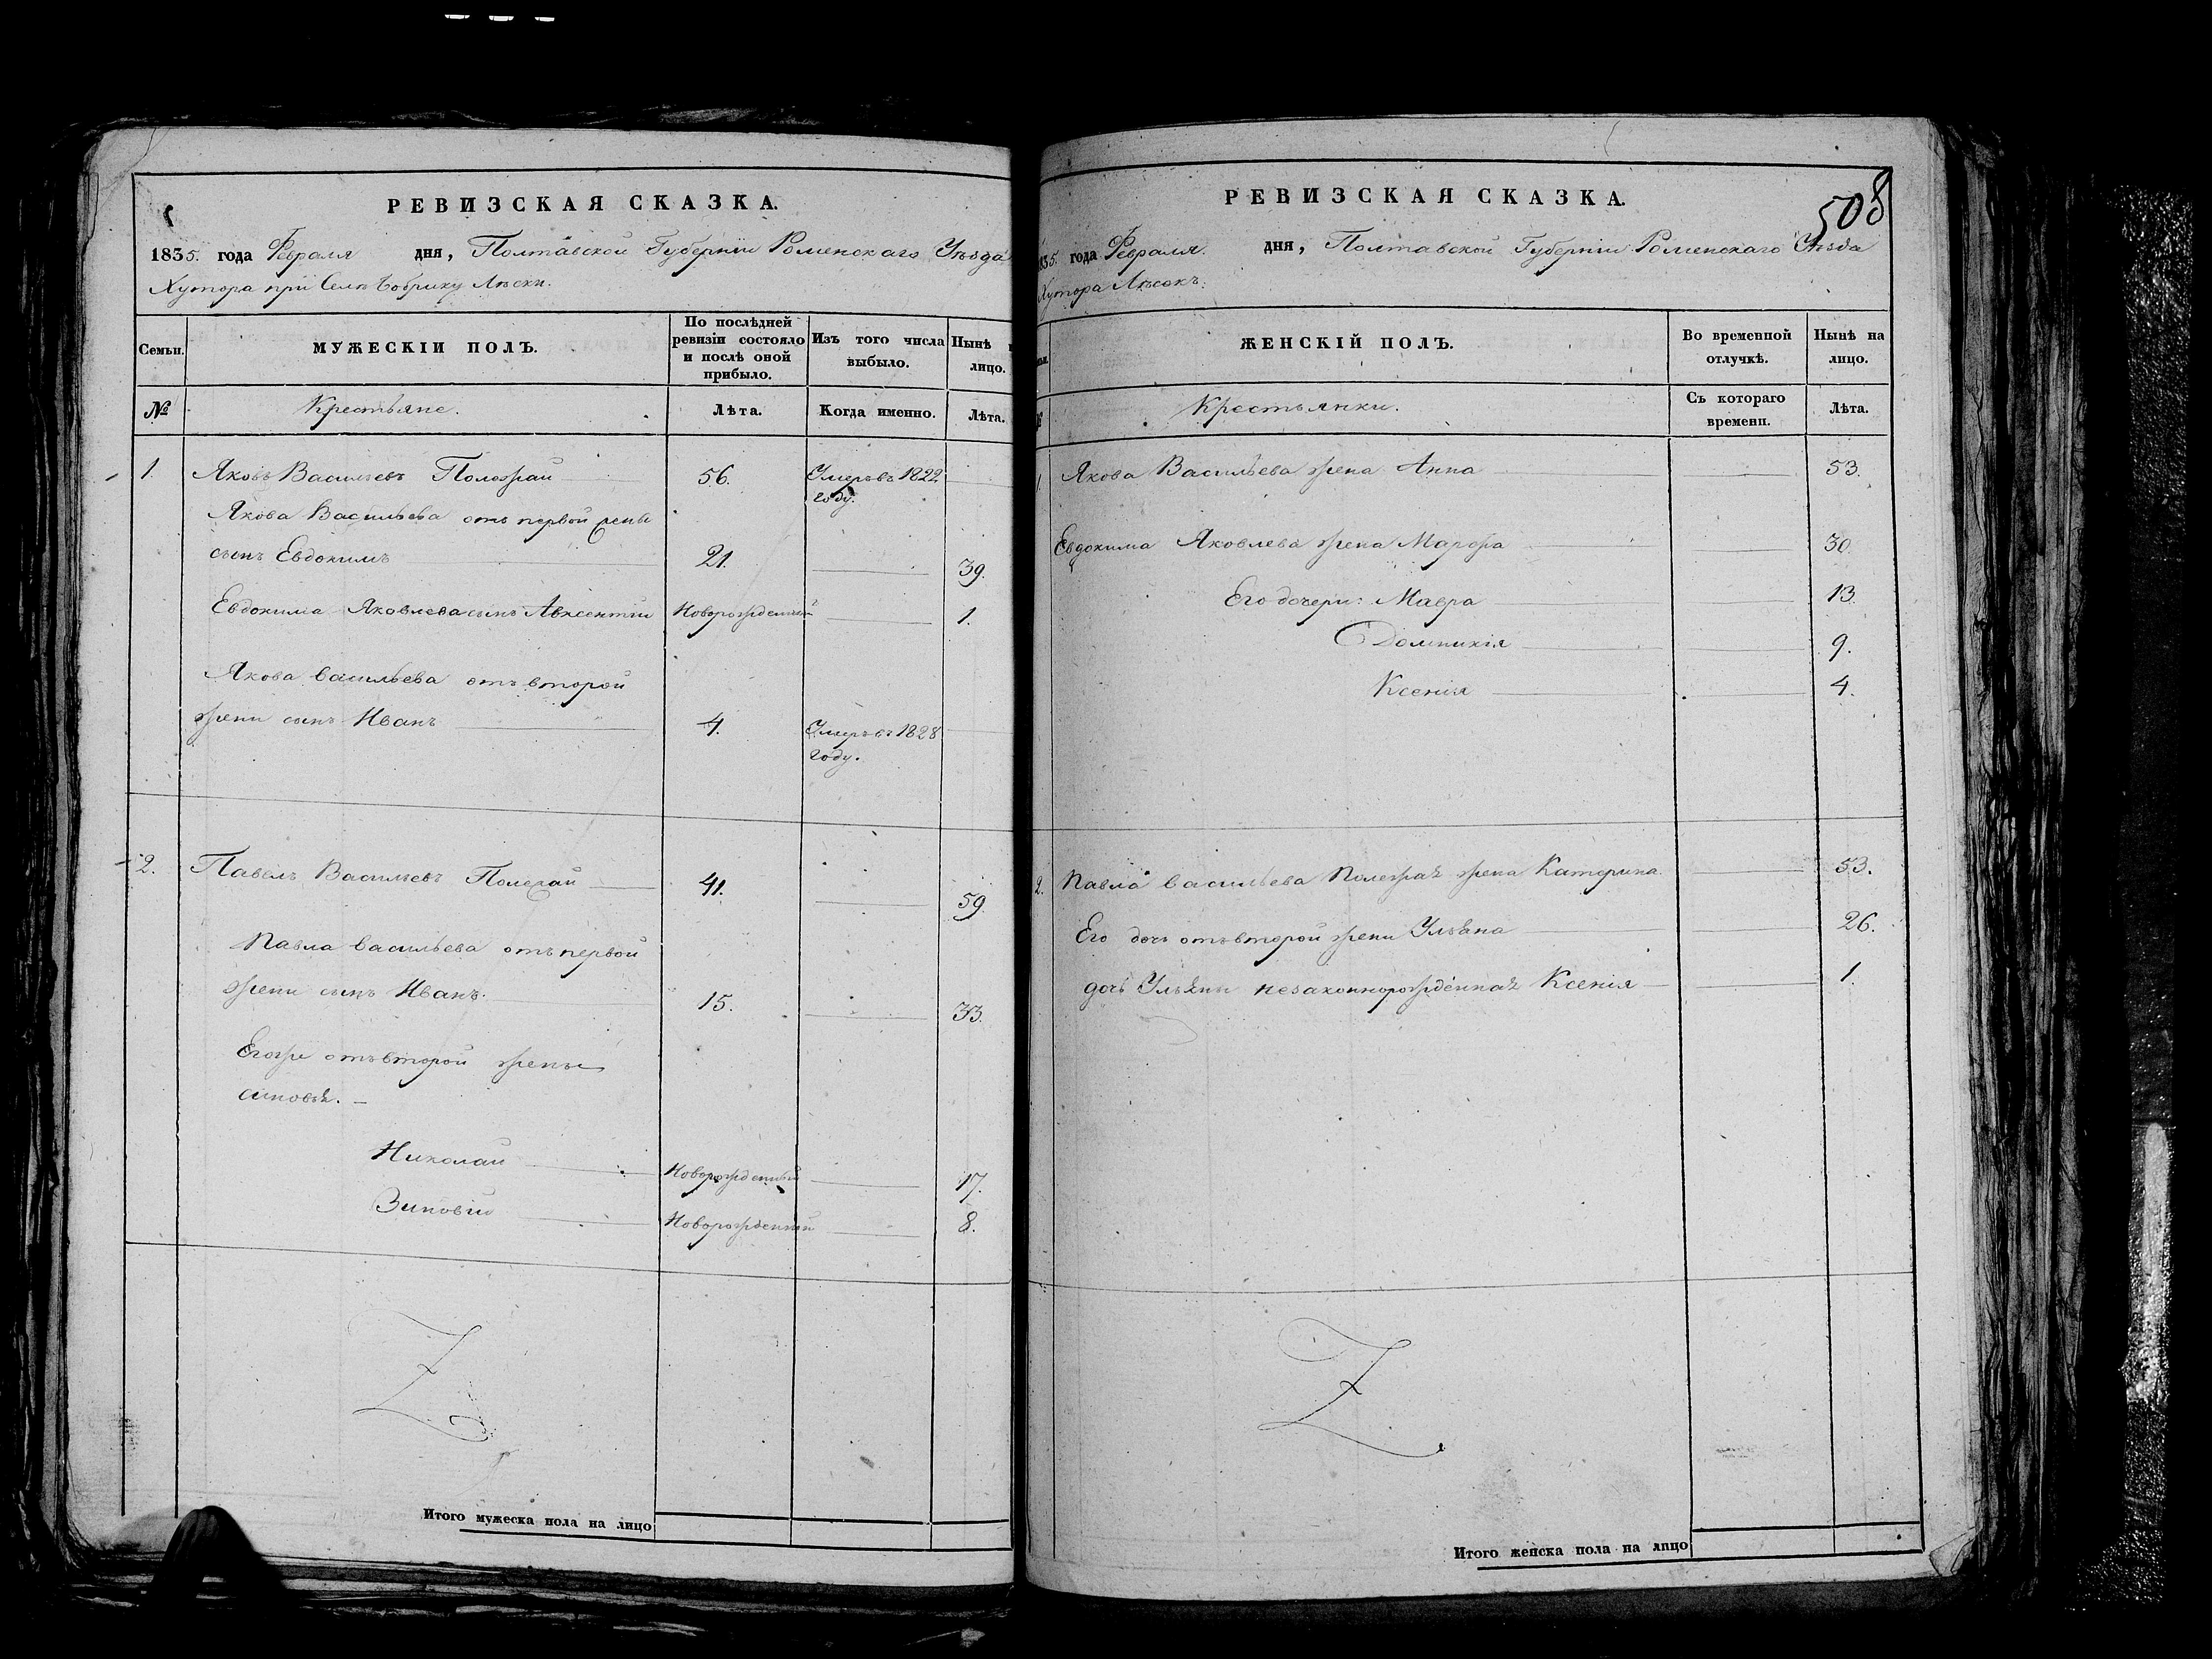 РЕВИЗСКАЯ СКАЗКА.
1835. года Февраля дня, Полтавской Губернiи Роменскаго Уѣзда
Хутора при Селѣ Бобрику Лѣски.
Семьи. МУЖЕСКIИ ПОЛЪ. По послѣдней ревизiи состояло и послѣ оной прибыло. Изъ того числа выбыло. Нынѣ лицо.
№ Крестьяне. Лѣта. Когда именно. Лѣта.
1. Яковъ Васильевъ Полежай 56. Умеръ въ 1822 году.
Якова Васильева отъ первой жены
сынъ Евдокимъ 21. 39.
Евдокима Яковлева сынъ Авксентiй Новорожденный 1.
Якова Васильева отъ второй
жени сынъ Иванъ 4. Умеръ въ 1828 году.
2. Павелъ Васильевъ Полежай 41. 59.
Павла Васильева отъ первой
жени сынъ Иванъ. 15. 33.
Егоже отъ второй жены
синовья.
Николай Новорожденный 17.
Зиновiй Новорожденный 8.
Итого мужеска пола на лицо
РЕВИЗСКАЯ СКАЗКА.
508
1835. года Февраля. дня, Полтавской Губернiи Роменскаго Уѣзда
Хутора Лѣсокъ.
ЖЕНСКIЙ ПОЛЪ. Во временной отлучкѣ. Нынѣ на лицо.
№ Крестьянки. Съ котораго времени. Лѣта.
1. Якова Васильева жена Анна 53.
Евдокима Яковлева жена Марфа 30.
Его дочери: Мавра 13.
Домникiя 9.
Ксенiя 4.
2. Павла Васильева Полежая жена Катерина 53.
Его дочь отъ второй жени Ульяна 26.
дочь Ульяны незаконнорожденная Ксенiя 1.
Итого женска пола на лицо